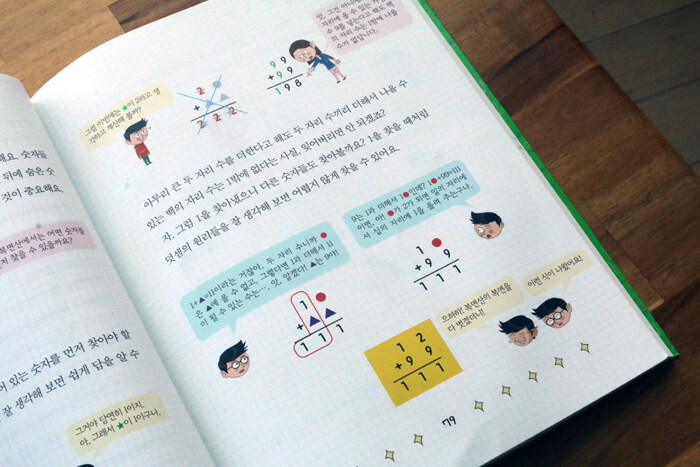 해요. 숫자들
뒤에 죽은 숫
것이 중요해요.
복면산에서는 어떤 숫자를
저 찾을 수 있을까요?
어 있는 숫자를 먼저 찾아야 할
잘 생각해 보면 쉽게 답을 알 수
그거야 당연히 1이지.
아, 그래서 ★이 1이구나.
그럼 이번에는 ★이 2라고 생
각하고 계산해 볼까?
2
+ 2
2 2 2
9 9
+ 9 9
1 9 8
맞, 그건 아니
자리에 올 수 있는 가
수 9를 넣는다고 해도 백
의 자리 수는 1밖에 나올
수가 없답니다.
아무리 큰 두 자리 수를 더한다고 해도 두 자리 수끼리 더해서 나올 수
있는 백의 자리 수는 1밖에 없다는 사실, 잊어버리면 안 되겠죠?
자, 그럼 1을 찾아냈으니 다른 숫자들도 찾아볼까요? 1을 찾을 때처럼
덧셈의 원리들을 잘 생각해 보면 어렵지 않게 찾을 수 있어요.
1+▲=11이라는 거잖아, 두 자리 수니까 ●
은 ▲에 올 수 없고, 그렇다면 1과 더해서 11
이 될 수 있는 수는…, 앗, 알겠다! ▲는 9야!
1 ●
+ ▲ ▲
1 1 1
9는 1과 더해서 1●인데? 1●+99=111
이면, 아! ●가 2가 되면 일의 자리에
서 십의 자리에 1을 올려 주는구나.
1 ●
+ 9 9
1 1 1
1 2
+ 9 9
1 1 1
으하하! 복면산의 복면을
다 벗겼다니!
이런 식이 나왔어요!
79